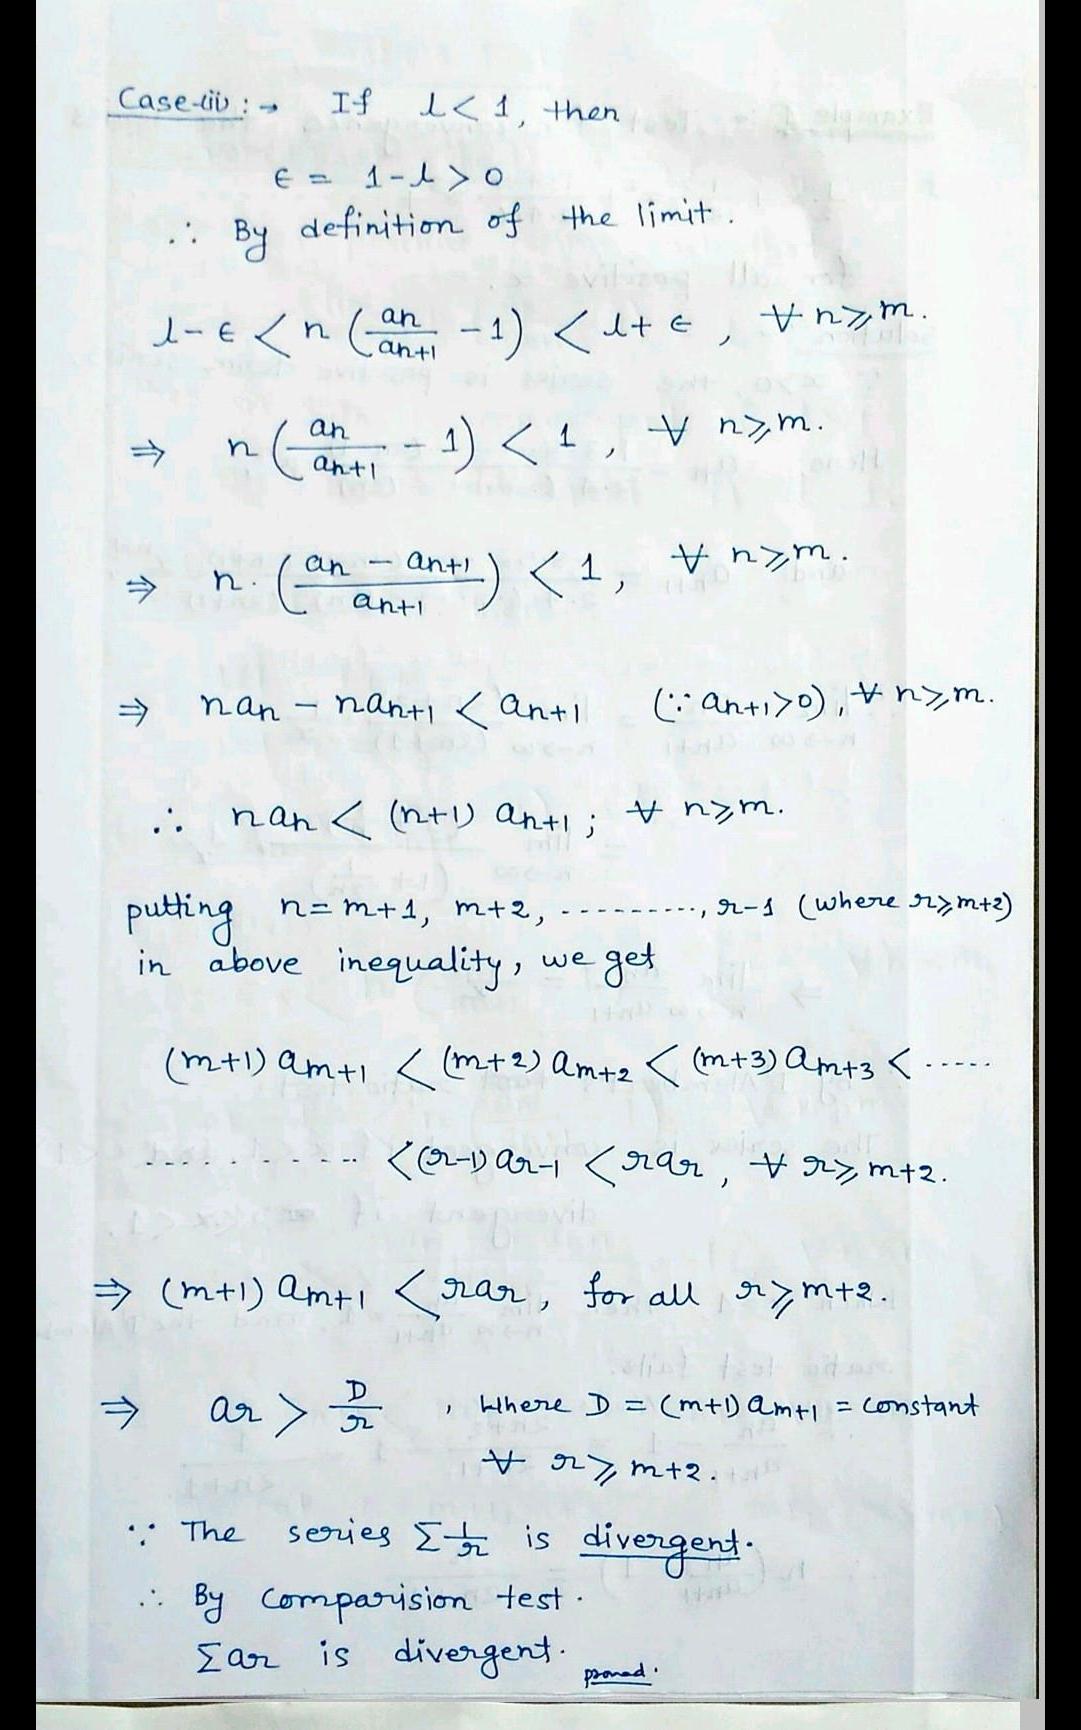 Case-(ii) :→ If l < 1, then
ϵ = 1-l > 0
∴ By definition of the limit.
l-ϵ < n (an/an+1 - 1) < l+ϵ, ∀ n⩾m.
⇒ n (an/an+1 - 1) < 1, ∀ n⩾m.
⇒ n. (an - an+1/an+1) < 1, ∀ n⩾m.
⇒ nan - nan+1 < an+1 (∵ an+1>0), ∀ n⩾m.
∴ nan < (n+1) an+1; ∀ n⩾m.
putting n=m+1, m+2, ----------, r-1 (where r⩾m+2)
in above inequality, we get
(m+1) am+1 < (m+2) am+2 < (m+3) am+3 < .....
............ < (r-1) ar-1 < rar, ∀ r⩾m+2.
⇒ (m+1) am+1 < rar, for all r⩾m+2.
⇒ ar > D/r , Where D = (m+1) am+1 = constant
∀ r⩾m+2.
∵ The series Σ1/r is divergent.
∴ By Comparision test.
Σar is divergent. proved.